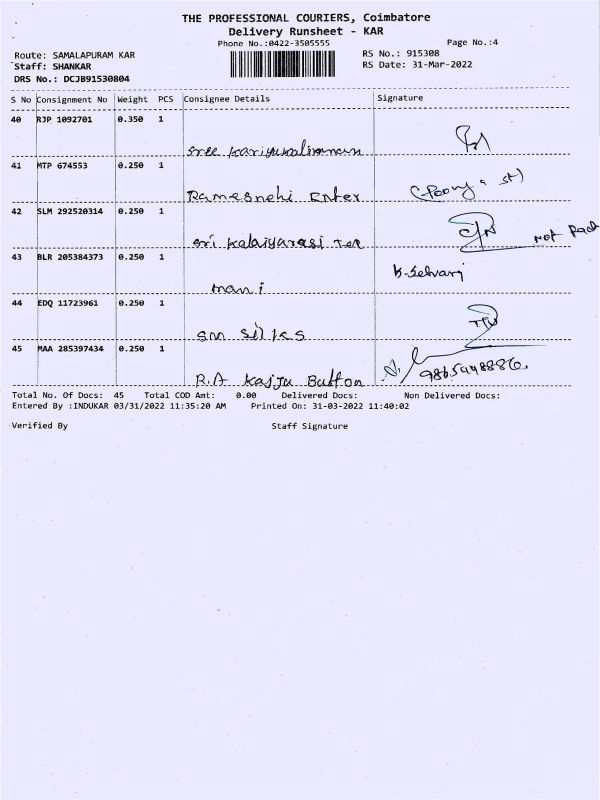 THE PROFESSIONAL COURIERS, Coimbatore
Delivery Runsheet - KAR
Phone No.:0422-3505555
Page No.:4
Route: SAMALAPURAM KAR
RS No.: 915308
Staff: SHANKAR
RS Date: 31-Mar-2022
DRS No.: DCJB91530804
S No Consignment No Weight PCS Consignee Details Signature
40 RJP 1092701 0.350 1
Sree
41 MTP 674553 0.250 1
Ramesnehi Enter
42 SLM 292520314 0.250 1
Sri Kalaiyarasi Tex Not
43 BLR 205384373 0.250 1
mani
44 EDQ 11723961 0.250 1
sm silks
45 MAA 285397434 0.250 1
R.A Kaiju Button
Total No. Of Docs: 45 Total COD Amt: 0.00 Delivered Docs: Non Delivered Docs:
Entered By :INDUKAR 03/31/2022 11:35:20 AM Printed On: 31-03-2022 11:40:02
Verified By Staff Signature